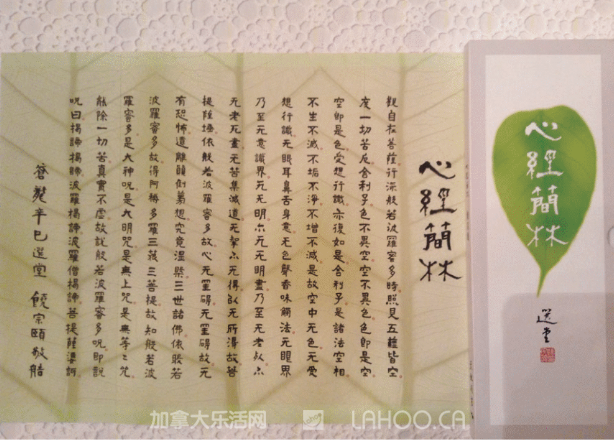 心經簡林
觀自在菩薩行深般若波羅蜜多時照見五蘊皆空
度一切苦厄舍利子色不異空空不異色色即是空
空即是色受想行識亦復如是舍利子是諸法空相
不生不滅不垢不淨不增不減是故空中无色无受
想行識无眼耳鼻舌身意无色聲香味觸法无眼界
乃至无意識界无无明亦无无明盡乃至无老死亦
无老死盡无苦集滅道无智亦无得以无所得故菩
提薩埵依般若波羅蜜多故心无罣礙无罣礙故无
有恐怖遠離顛倒夢想究竟涅槃三世諸佛依般若
波羅蜜多故得阿耨多羅三藐三菩提故知般若波
羅蜜多是大神咒是大明咒是無上咒是無等=咒
能除一切苦真實不虛故說般若波羅蜜多咒即說
咒曰揭諦揭諦波羅揭諦波羅僧揭諦菩提薩婆訶
辛巳選堂 饒宗頤敬
心經簡林
選堂
加拿大乐活网 LAHOO.CA